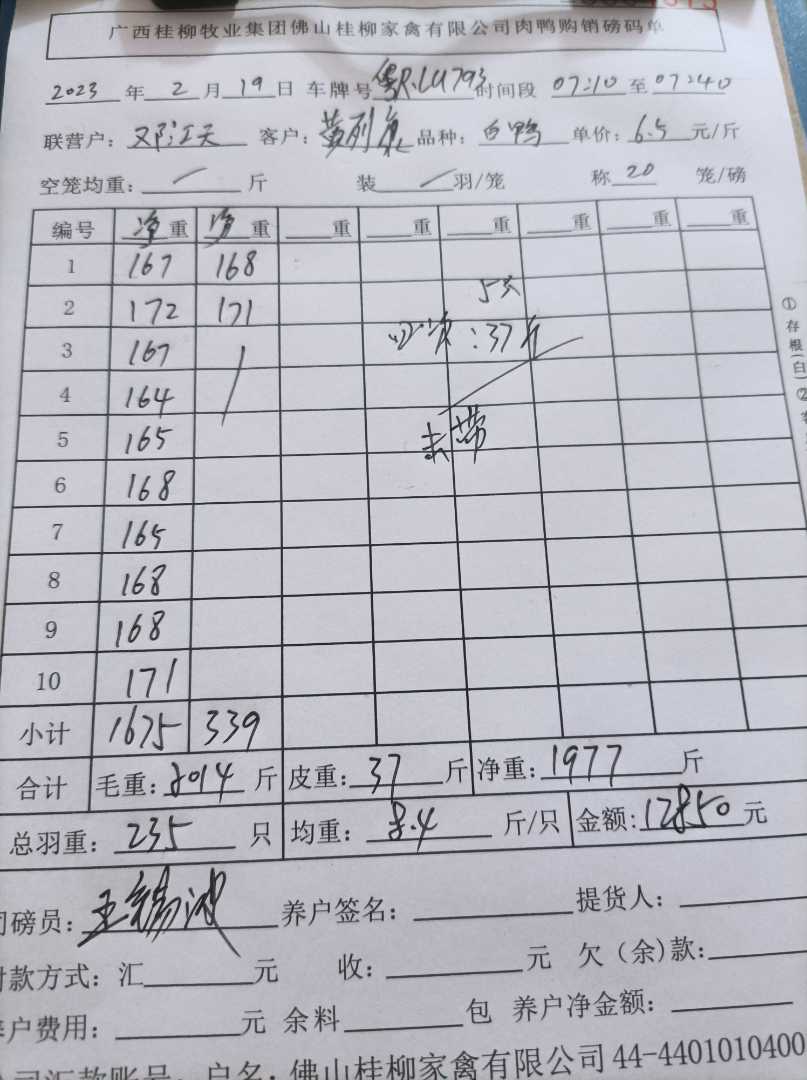 广西桂柳牧业集团佛山桂柳家禽有限公司肉鸭购销磅码单
2023 年 2 月 19 日 车牌号 粤R.LU793 时间段 07:10 至 07:40
联营户: 邓江天 客户: 黄列 品种: 白鸭 单价: 6.5 元/斤
空笼均重: 斤 装 羽/笼 称 20 笼/磅
编号 净重 净重 重 重 重 重 重 重
1 167 168
2 172 171
3 167
4 164
5 165
6 168
7 165
8 168
9 168
10 171
小计 1675 339
5只
:37斤
未带
合计 毛重: 2014 斤 皮重: 37 斤 净重: 1977 斤
总羽重: 235 只 均重: 8.4 斤/只 金额: 12850 元
司磅员: 王锡 养户签名: 提货人:
付款方式: 汇 元 收: 元 欠（余）款:
养户费用: 元 余料 包 养户净金额:
公司汇款账号: 户名: 佛山桂柳家禽有限公司 44-4401010400
①存根(白)②